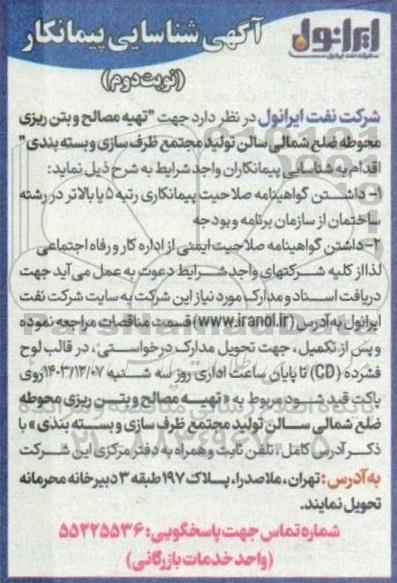 ایرانول
شرکت نفت ایرانول
آگهی شناسایی پیمانکار
(نوبت دوم)
شرکت نفت ایرانول در نظر دارد جهت "تهیه مصالح و بتن ریزی
محوطه ضلع شمالی سالن تولید مجتمع ظرف سازی و بسته بندی"
اقدام به شناسایی پیمانکاران واجد شرایط به شرح ذیل نماید:
۱- داشتن گواهینامه صلاحیت پیمانکاری رتبه ۵ یا بالاتر در رشته
ساختمان از سازمان برنامه و بودجه
۲- داشتن گواهینامه صلاحیت ایمنی از اداره کار و رفاه اجتماعی
لذا از کلیه شرکتهای واجد شرایط دعوت به عمل می آید جهت
دریافت اسناد و مدارک مورد نیاز این شرکت به سایت شرکت نفت
ایرانول به آدرس (www.iranol.ir) قسمت مناقصات مراجعه نموده
و پس از تکمیل، جهت تحویل مدارک درخواستی، در قالب لوح
فشرده (CD) تا پایان ساعت اداری روز سه شنبه ۱۴۰۳/۱۲/۰۷ روی
پاکت قید شود مربوط به «تهیه مصالح و بتن ریزی محوطه
ضلع شمالی سالن تولید مجتمع ظرف سازی و بسته بندی» با
ذکر آدرس کامل، تلفن ثابت و همراه به دفتر مرکزی این شرکت
به آدرس: تهران، ملاصدرا، پلاک ۱۹۷ طبقه ۳ دبیرخانه محرمانه
تحویل نمایند.
شماره تماس جهت پاسخگویی: ۵۵۲۲۵۵۳۶
(واحد خدمات بازرگانی)